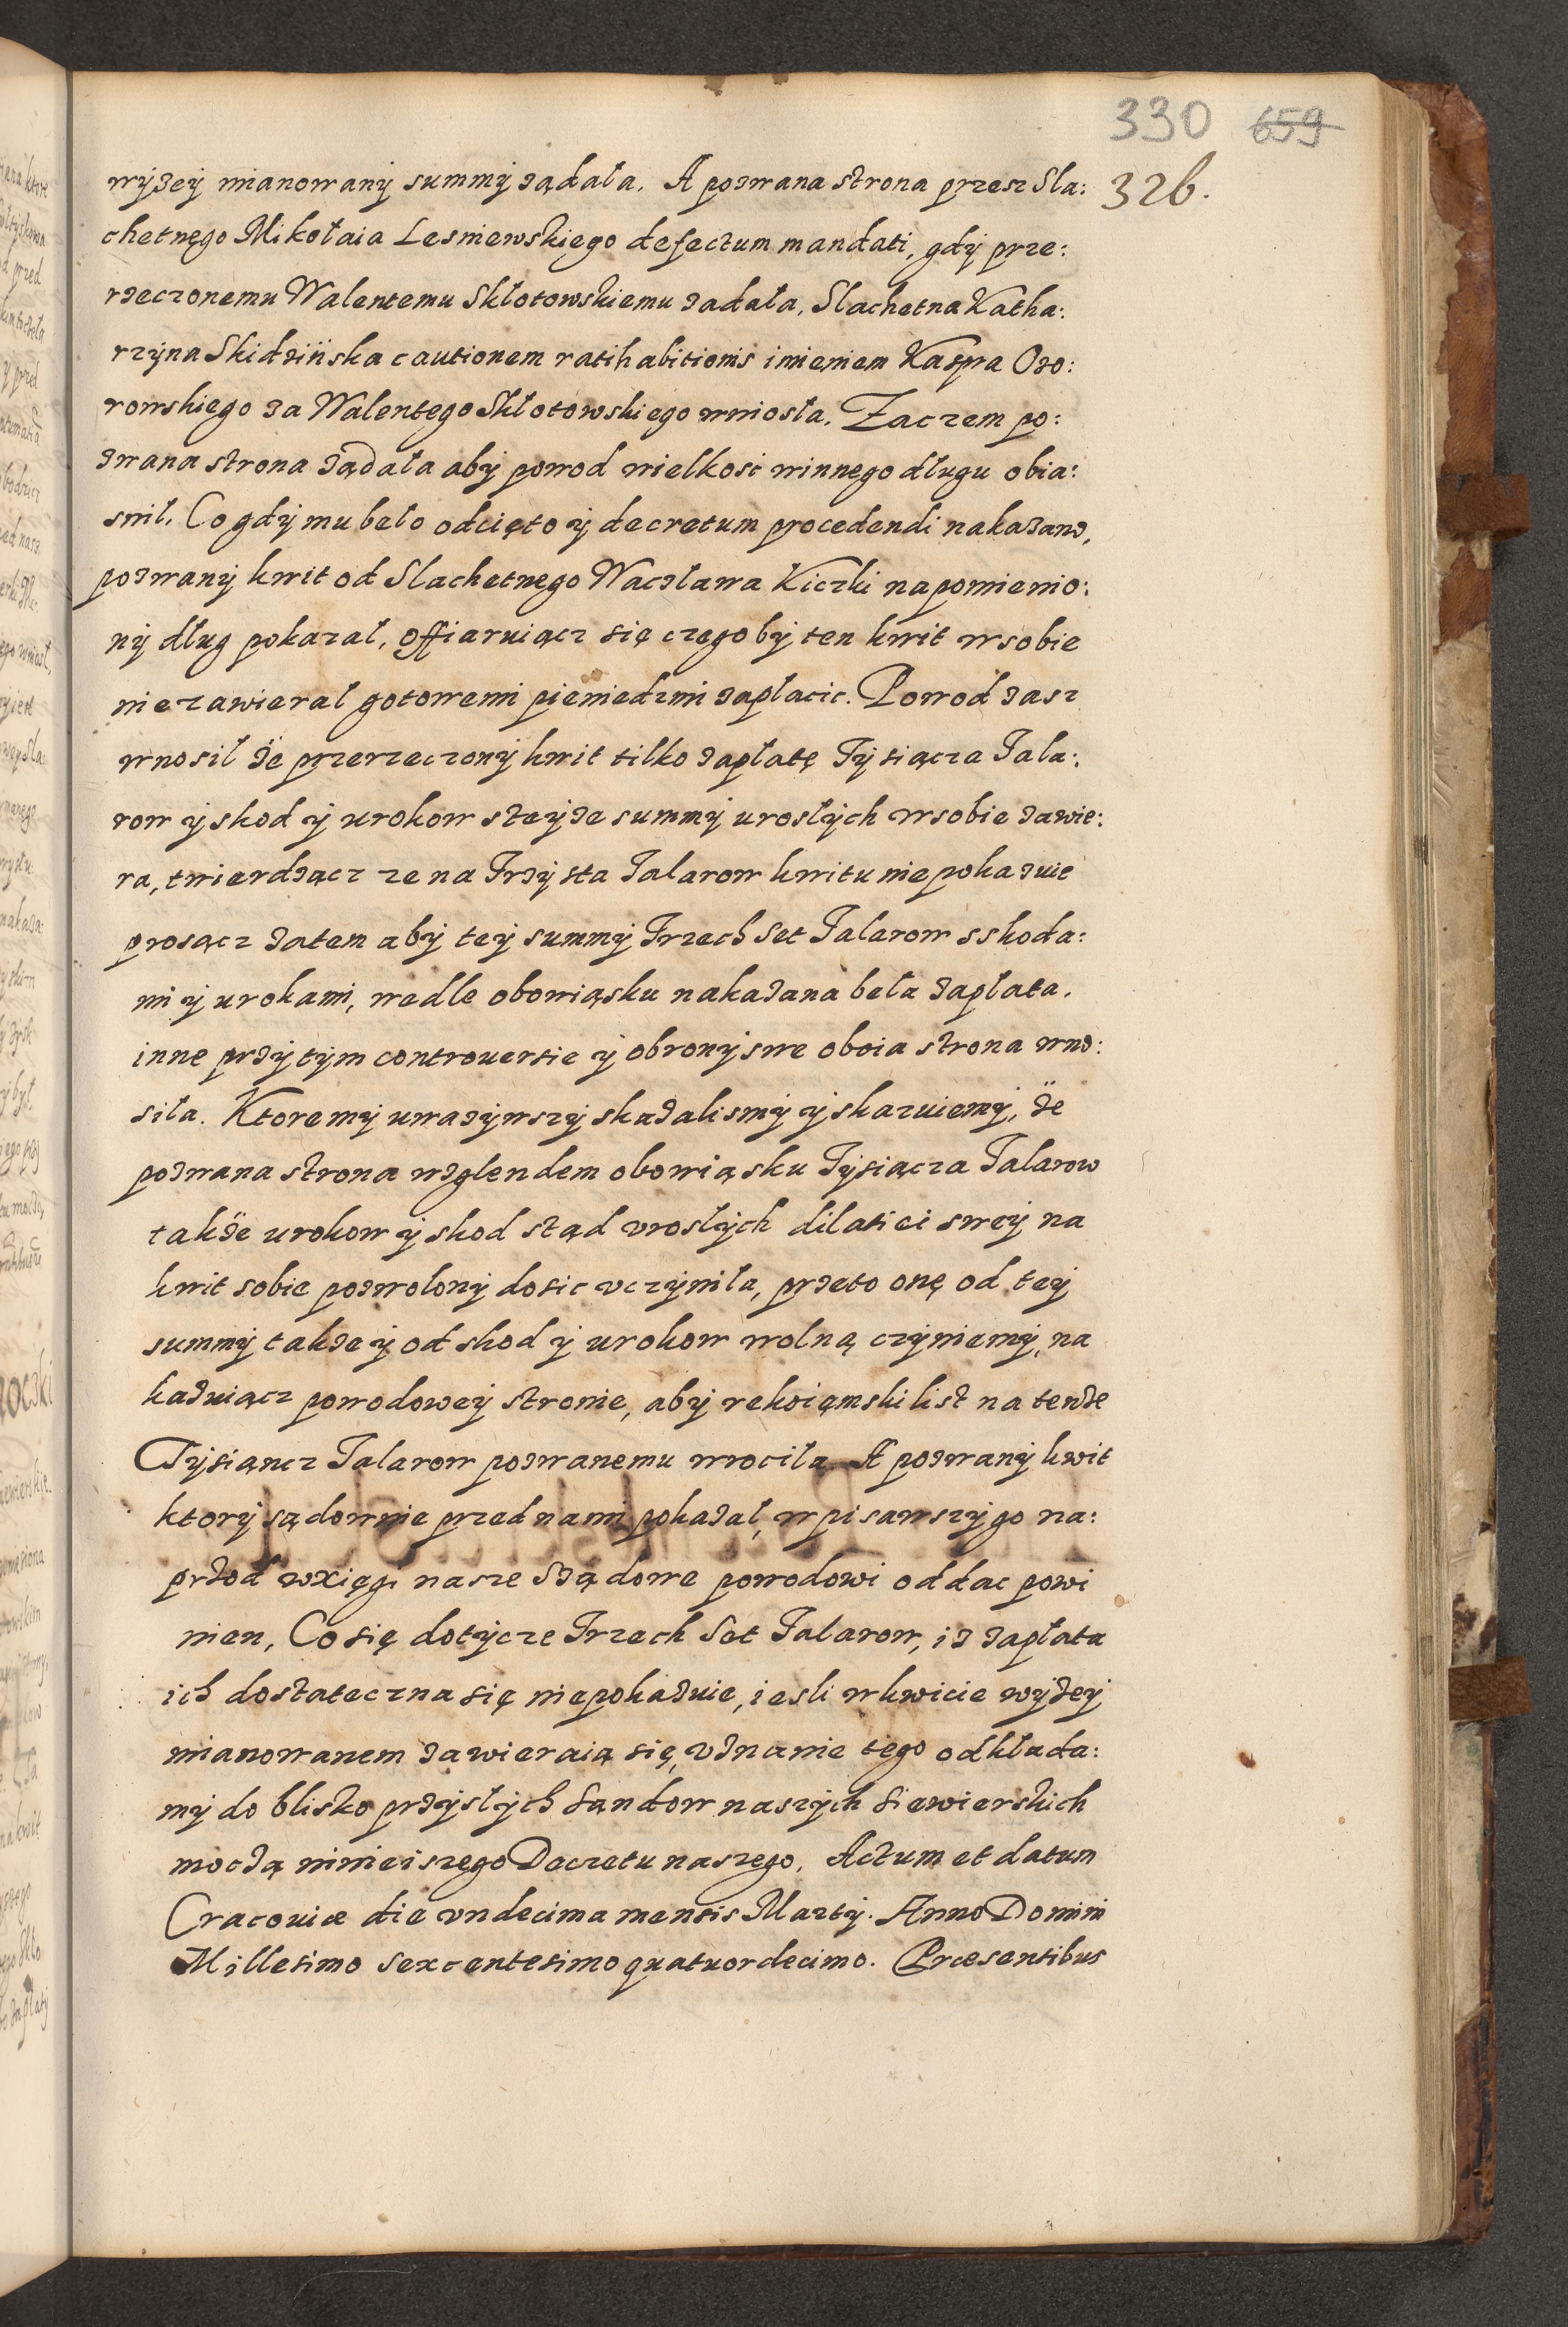 330 659
326.
wyzey mianowany summy ządała. A pozwana strona przesz Sla:
chetnęgo Mikołaia Lesniewskiego defectum mandati, gdy prze:
rzeczonemu Walentemu Skłotowskiemu zadała, Slachetna Katha:
rzyna Skidzińska cautionem ratihabitionis imieniem Kaspra Ozo:
rowskiego za Walentego Skłotowskiego wniosła. Zaczem po:
zwana strona ządała aby powod wielkosc winnego długu obia:
snil. Co gdy mu beło odcięto y decretum procedendi nakazano,
pozwany kwit od Slachetnego Wacława Kiczki na pomienio:
ny dług pokazał, offiaruiącz się czego by ten kwit w sobie
niezawierał gotowemi pieniedzmi zapłacic. Powod zasz
wnosił że przerzeczony kwit tilko zapłatę Tysiącza Tala:
row y skod y urokow zteyze summy urosłych w sobie zawie:
ra, twierdzącz ze na Trzysta Talarow kwitu niepokazuie
prosącz zatem aby tey summy Trzech Set Talarow s skoda:
mi y urokami, wedle obowiąsku nakazana beła zapłata.
inne przytym controuersie y obrony swe oboia strona wno:
siła. Ktore my uwazywszy skazalismy y skazuiemy, że
pozwana strona wzglendem obowiąsku Tysiącza Talarow
także urokow y skod stąd vrosłych dilatiei swey na
kwit sobie pozwolony dosic vczyniła, przeto onę od tey
summy takze y od skod y urokow wolną czyniemy, na
kazuiącz powodowey stronie, aby rekoięmski list na tenże
Tysiąncz Talarow pozwanemu wrociła. A pozwany kwit
ktory sądownie przed nami pokazał, wpisawszy go na:
przod w xięgi nasze Sządowe powodowi oddac powi
nien, Co się dotycze Trzech Set Talarow, iz zapłata
ich dostateczna się niepokazuie, iesli w kwicie wyzey
mianowanem zawieraią się, vznanie tego odkłada:
my do blisko przysłych Sandow naszych Siewierskich
moczą ninieiszego Decretu naszego. Actum et datum
Cracouiæ die vndecima mensis Marty. Anno Domini
Millesimo Sexcentesimo quatuordecimo. Præsentibus